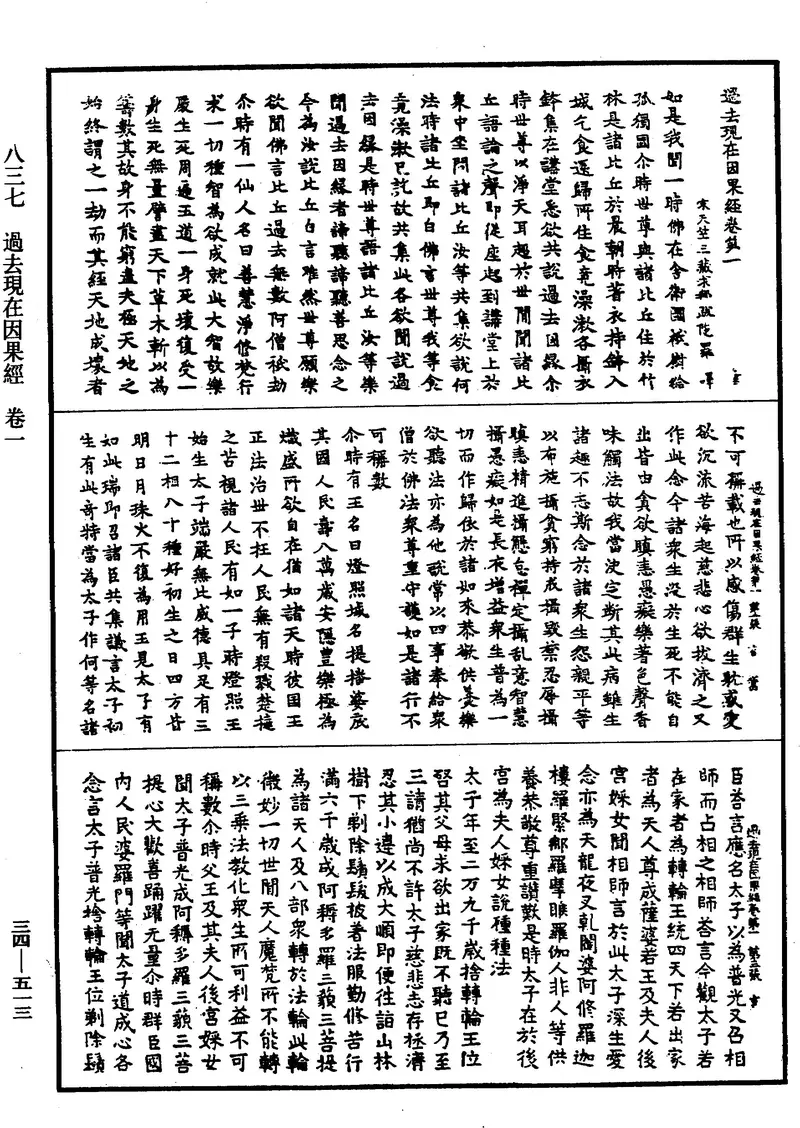 過去現在因果經卷第一
宋天竺三藏求那跋陀羅 譯
如是我聞一時佛在舍衛國祇樹給
孤獨園尒時世尊與諸比丘住於竹
林是諸比丘於晨朝時著衣持鉢入
城乞食還歸所住食竟澡漱各攝衣
鉢集在講堂悉欲共說過去因緣尒
時世尊以淨天耳超於世間聞諸比
丘語論之聲即從座起到講堂上於
衆中坐問諸比丘汝等共集欲說何
法時諸比丘即白佛言世尊我等食
竟澡漱已訖故共集此各欲聞說過
去因緣是時世尊語諸比丘汝等樂
聞過去因緣者諦聽諦聽善思念之
今為汝說比丘白言唯然世尊願樂
欲聞佛言比丘過去無數阿僧祇劫
尒時有一仙人名曰善慧淨修梵行
求一切種智為欲成就此大智故樂
處生死周遍五道一身死壞復受一
身生死無量譬盡天下草木斬以為
籌數其故身不能窮盡夫極天地之
始終謂之一劫而其經天地成壞者
不可稱載也所以感傷群生耽惑愛
欲沉流苦海起慈悲心欲拔濟之又
作此念今諸衆生没於生死不能自
出皆由貪欲瞋恚愚癡樂著色聲香
味觸法故我當決定斷其此病雖生
諸趣不忘斯念於諸衆生怨親平等
以布施攝貧窮持戒攝毀禁忍辱攝
瞋恚精進攝懈怠禪定攝亂意智慧
攝愚癡如是長夜增益衆生普為一
切而作歸依於諸如來恭敬供養樂
欲聽法亦為他說常以四事奉給衆
僧於佛法衆尊重守護如是諸行不
可稱數
尒時有王名曰燈照城名提播婆底
其國人民壽八萬歲安隱豐樂極為
熾盛所欲自在猶如諸天時彼國王
正法治世不枉人民無有殺戮楚撻
之苦視諸人民有如一子時燈照王
始生太子端嚴無比威德具足有三
十二相八十種好初生之日四方皆
明日月珠火不復為用王見太子有
如此瑞即召諸臣共集議言太子初
生有此奇特當為太子作何等名諸
過去現在因果經卷第一 第二張
臣答言應名太子以為普光又召相
師而占相之相師答言今觀太子若
在家者為轉輪王統四天下若出家
者為天人尊成薩婆若王及夫人後
宮婇女聞相師言於此太子深生愛
念亦為天龍夜叉乹闥婆阿修羅迦
樓羅緊那羅摩睺羅伽人非人等供
養恭敬尊重讃歎是時太子在於後
宮為夫人婇女說種種法
太子年至二万九千歲捨轉輪王位
啓其父母求欲出家既不聽已乃至
三請猶尚不許太子慈悲志存拯濟
忍其小違以成大順即便往詣山林
樹下剃除鬚髮披著法服勤修苦行
滿六千歲成阿耨多羅三藐三菩提
為諸天人及八部衆轉於法輪此輪
微妙一切世間天人魔梵所不能轉
以三乘法教化衆生所可利益不可
稱數尒時父王及其夫人後宮婇女
聞太子普光成阿耨多羅三藐三菩
提心大歡喜踊躍无量尒時群臣國
內人民婆羅門等聞太子道成心各
念言太子普光捨轉輪王位剃除鬚
八三七 過去現在因果經 卷一
三四—五一三